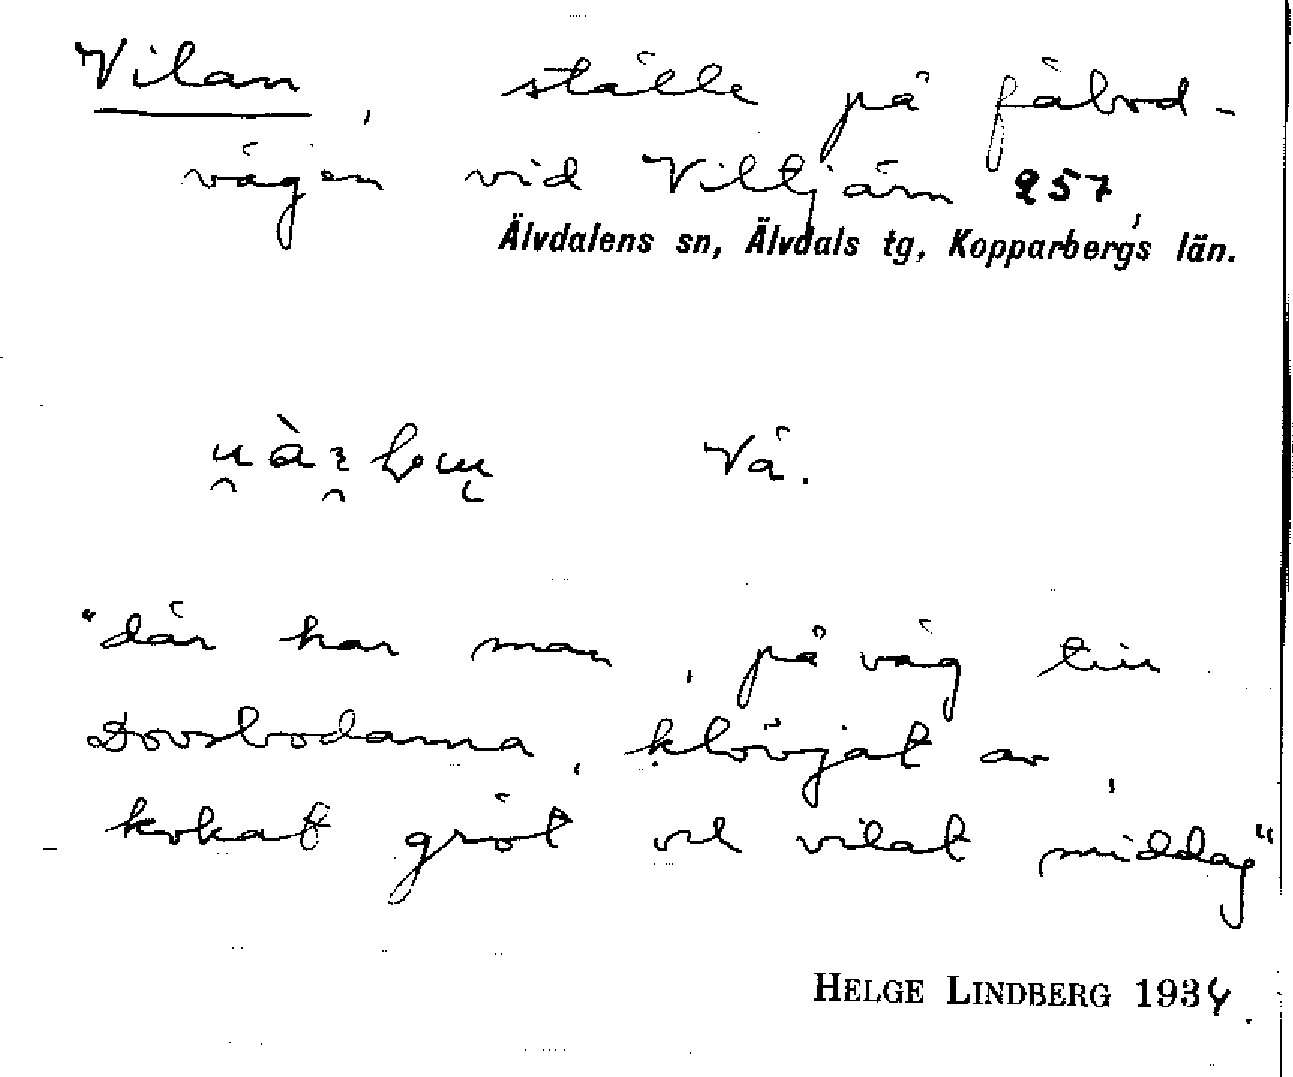 Vilan, ställe på fäbod-
vägen vid Viltjärn 257,
Älvdalens sn, Älvdals tg, Kopparbergs län.
Vä.
"där har man, på väg till
Dovsbodarna, klövjat av,
kokat gröt och vilat middag"
HELGE LINDBERG 1934.